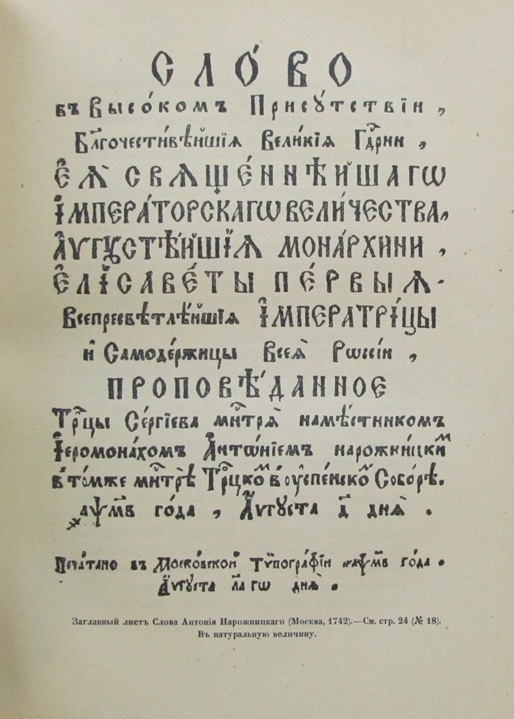 СЛО́ВО
въ Высо́комъ Прису́тствіи,
Благочести́вѣйшїѧ Вели́кїѧ Гдⷭ҇рни,
Є҆Ѧ̀ СВѦЩЕ́ННѢЙШАГѠ
І҆МПЕРА́ТОРСКАГѠ ВЕЛИ́ЧЕСТВА,
А҆ѴГꙊСТѢ́ЙШЇѦ МОНА́РХИНИ,
Є҆ЛІСАВЕ́ТЫ ПЕ́РВЫѦ.
Всепресвѣтлѣ́йшїѧ І҆МПЕРАТРІ́ЦЫ
и҆ Самоде́ржицы Всеѧ̀ Рѡссі́и,
ПРОПОВѢ́ДАННОЕ
Трⷪ҇цы Се́ргїева мн҃трѧ̀ намѣ́стникомъ
І҆еромона́хомъ А҆нтѡ́нїемъ нарожни́цкимъ
в то́мже мн҃трѣ̀ Трⷪ҇цкомъ в оу҆спе́нскомъ Собо́рѣ.
҂аѱм҃в го́да, А҆́ѵгуста д҃ днѧ̀.
Печа́тано въ Моско́вской Тѷпогра́фїи ҂аѱм҃в го́да.
А҆́ѵгуста л҃агѡ днѧ̀.
Заглавный листъ Слова Антонія Нарожницкаго (Москва, 1742).—См. стр. 24 (№ 18).
Въ натуральную величину.